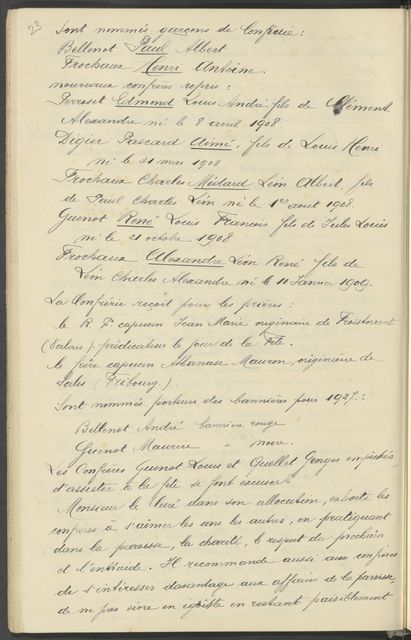 23
Sont nommés garçons de Confrérie :
Bellenot Paul Albert
Frochaux Henri Antoine.
nouveaux confrères repris :
Perroset Edmond Louis André fils de Clément
Alexandre né le 8 avril 1908
Digier Pascard Aimé, fils de Louis Henri
né le 31 mai 1908
Frochaux Charles Médard Léon Albert, fils
de Paul Charles Léon né le 1er aout 1908
Guenot René Louis François fils de Jules Louis
né le 21 octobre 1908
Frochaux Alexandre Léon René fils de
Léon Charles Alexandre né le 10 Janvier 1909.
La Confrérie reçoit pour les prières :
le R. P. capucin Jean Marie originaire de Troistorrent
(Valais) prédicateur le jour de la Fête.
le frère capucin Athanase Mauron, originaire de
Sales (Fribourg).
Sont nommés porteurs des bannières pour 1927 :
Bellenot André bannière rouge
Guenot Maurice " noire.
Les Confrères Guenot Louis et Quellet Georges empêchés
d'assister à la fête se font excuser.
Monsieur le Curé dans son allocution, exhorte les
confrères à s'aimer les uns les autres, en pratiquant
dans la paroisse, la charité, le respect du prochain
et l'entraide. Il recommande aussi aux confrères
de s'intéresser davantage aux affaires de la paroisse,
de ne pas vivre en égoïste en restant paisiblement